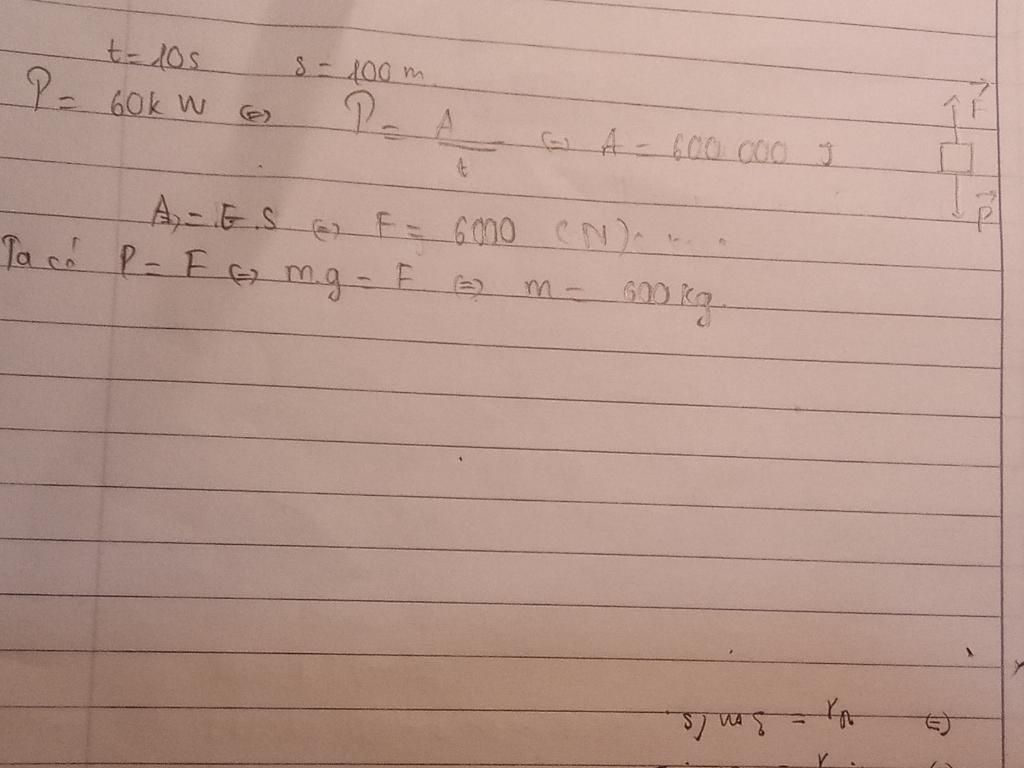 t = 10s s = 100 m
P = 60k W ⇔ P = A/t ⇔ A = 600 000 J
F
P
A = F.S ⇔ F = 6000 (N)
Ta có P = F ⇔ m.g = F ⇔ m = 600 kg